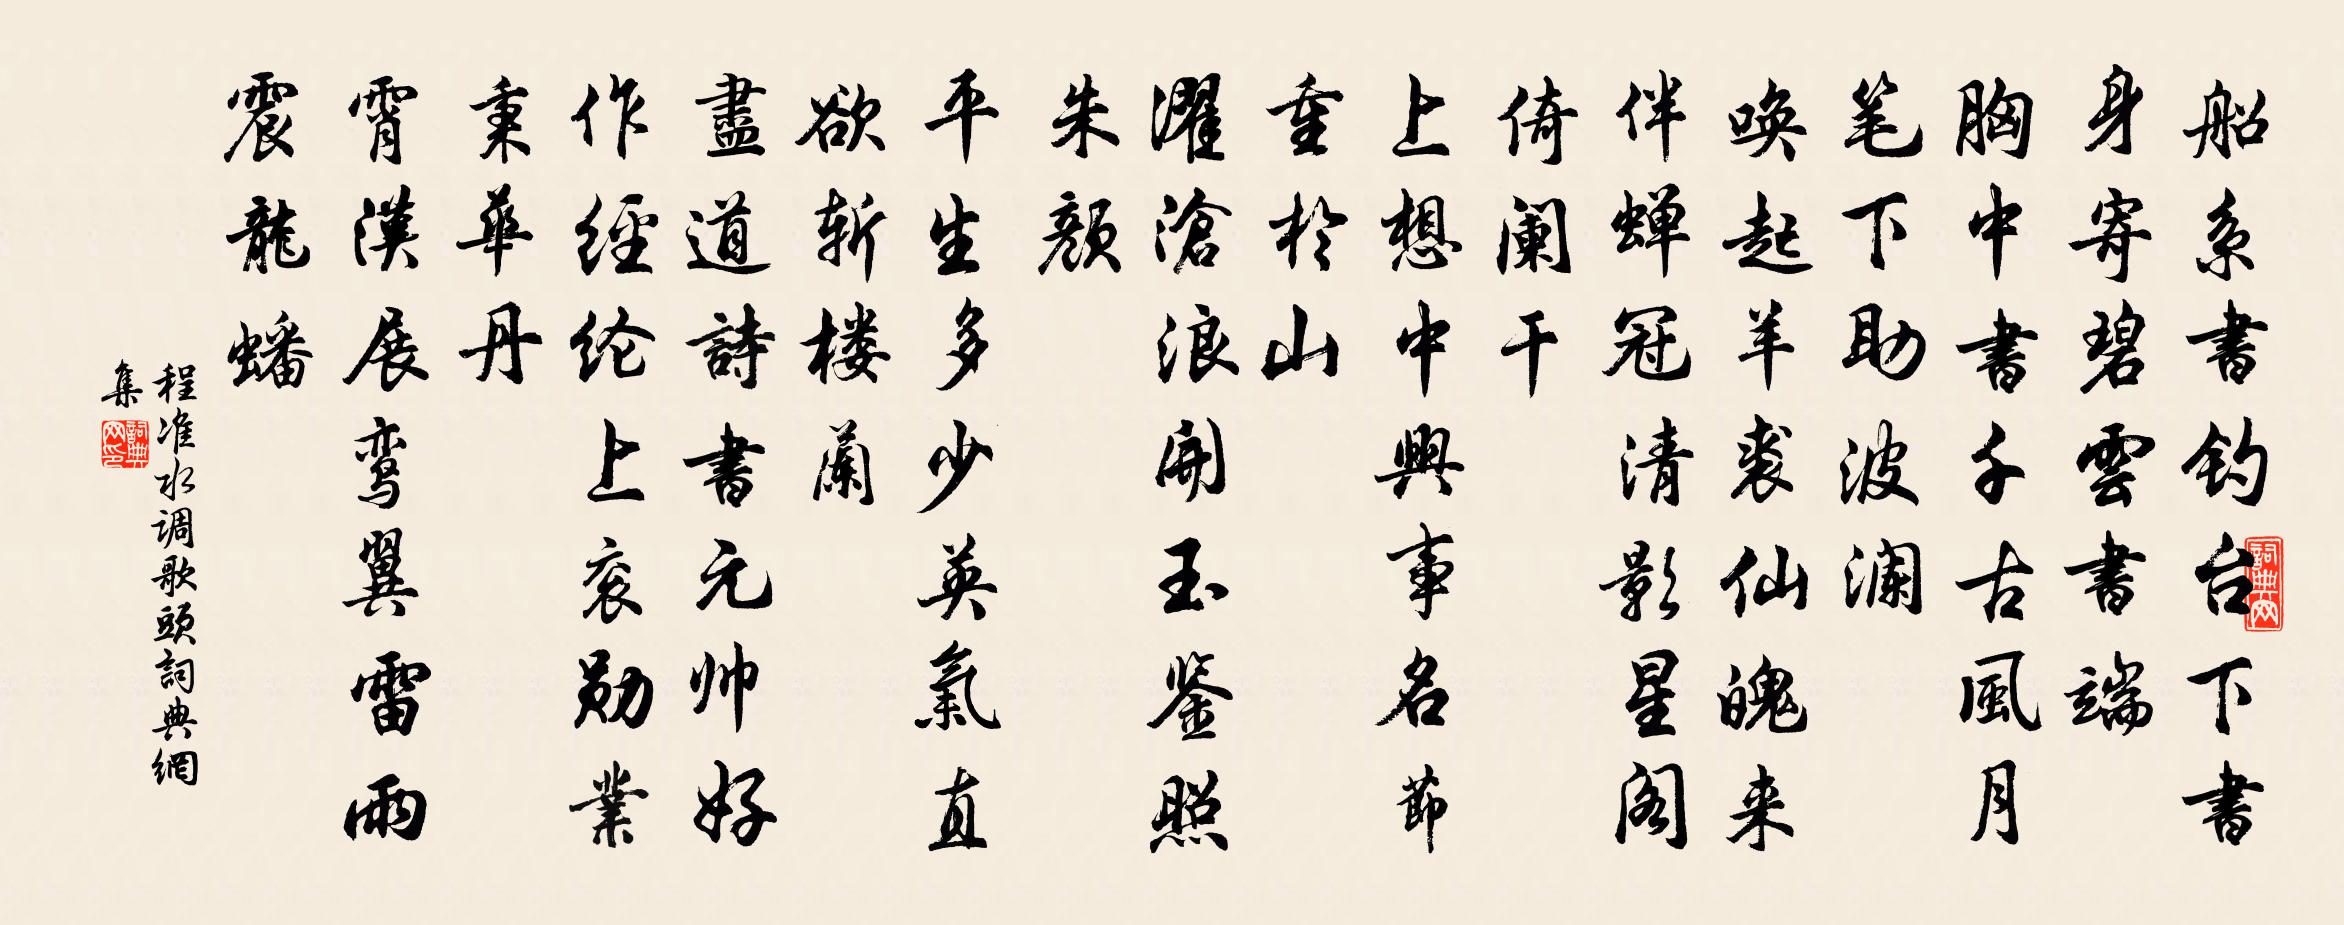 船系書釣台下書
身寄碧雲書端
胸中書千古風月
笔下助波澜
喚起羊裘仙魄来
伴蝉冠清影星阁
倚阑干
上想中興事名節
重於山
濯滄浪開玉鉴照
朱颜
平生多少英氣直
欲斩楼蘭
盡道詩書元帅好
作經纶上衮勋業
秉華丹
霄漢展鸾翼雷雨
震龍蟠
程准水调歌頭詞典網
集
詞典网
詞典网印